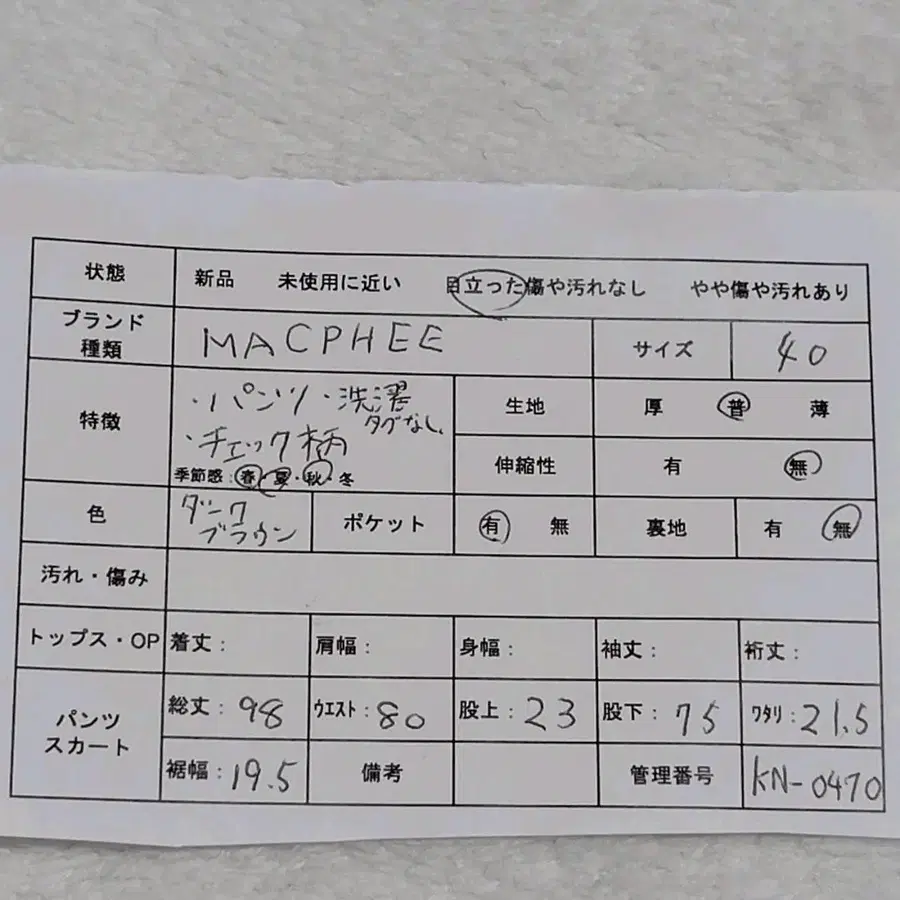 状態 新品 未使用に近い 目立った傷や汚れなし やや傷や汚れあり
ブランド
種類 MACPHEE サイズ 40
特徴 ・パンツ ・洗濯
タグなし
・チェック柄
季節感：春・夏・秋・冬
生地 厚 普 薄
伸縮性 有 無
色 ダーク
ブラウン
ポケット 有 無 裏地 有 無
汚れ・傷み
トップス・OP 着丈： 肩幅： 身幅： 袖丈： 裄丈：
パンツ
スカート
総丈：98 ｳｴｽﾄ：80 股上：23 股下：75 ﾜﾀﾘ：21.5
裾幅：19.5 備考 管理番号 KN-0470